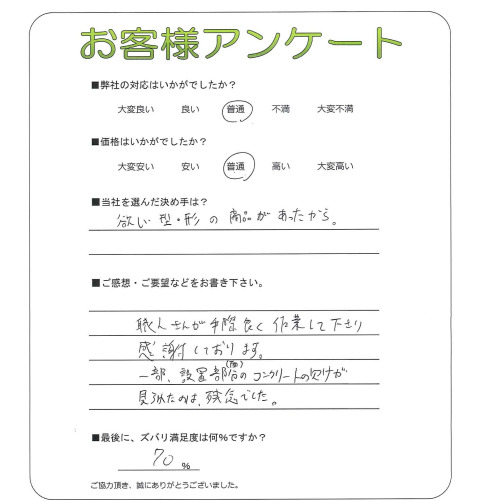 お客様アンケート
■弊社の対応はいかがでしたか？
大変良い 良い 普通 不満 大変不満
■価格はいかがでしたか？
大変安い 安い 普通 高い 大変高い
■当社を選んだ決め手は？
欲しい型・形の商品があったから。
■ご感想・ご要望などをお書き下さい。
職人さんが手際良く作業して下さり
感謝しております。
一部、設置部分(面)のコンクリートの欠けが
見られたのは、残念でした。
■最後に、ズバリ満足度は何%ですか？
70 %
ご協力頂き、誠にありがとうございました。